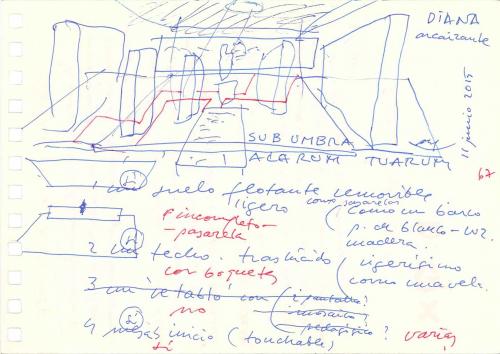 DIANA
arcaizante
11 junio 2015
SUB UMBRA
ALARUM TUARUM
67
1 un suelo flotante removible
ligero como pasarelas
como un barco
p. de blanco - luz.
madera.
incompleto -
- pasarela
2 un techo traslúcido
ligerísimo
como una vela.
con boquetes
3 un retablo con
¿pantalla?
¿mosaico?
no
4 inicio (touchable)
sí
varias